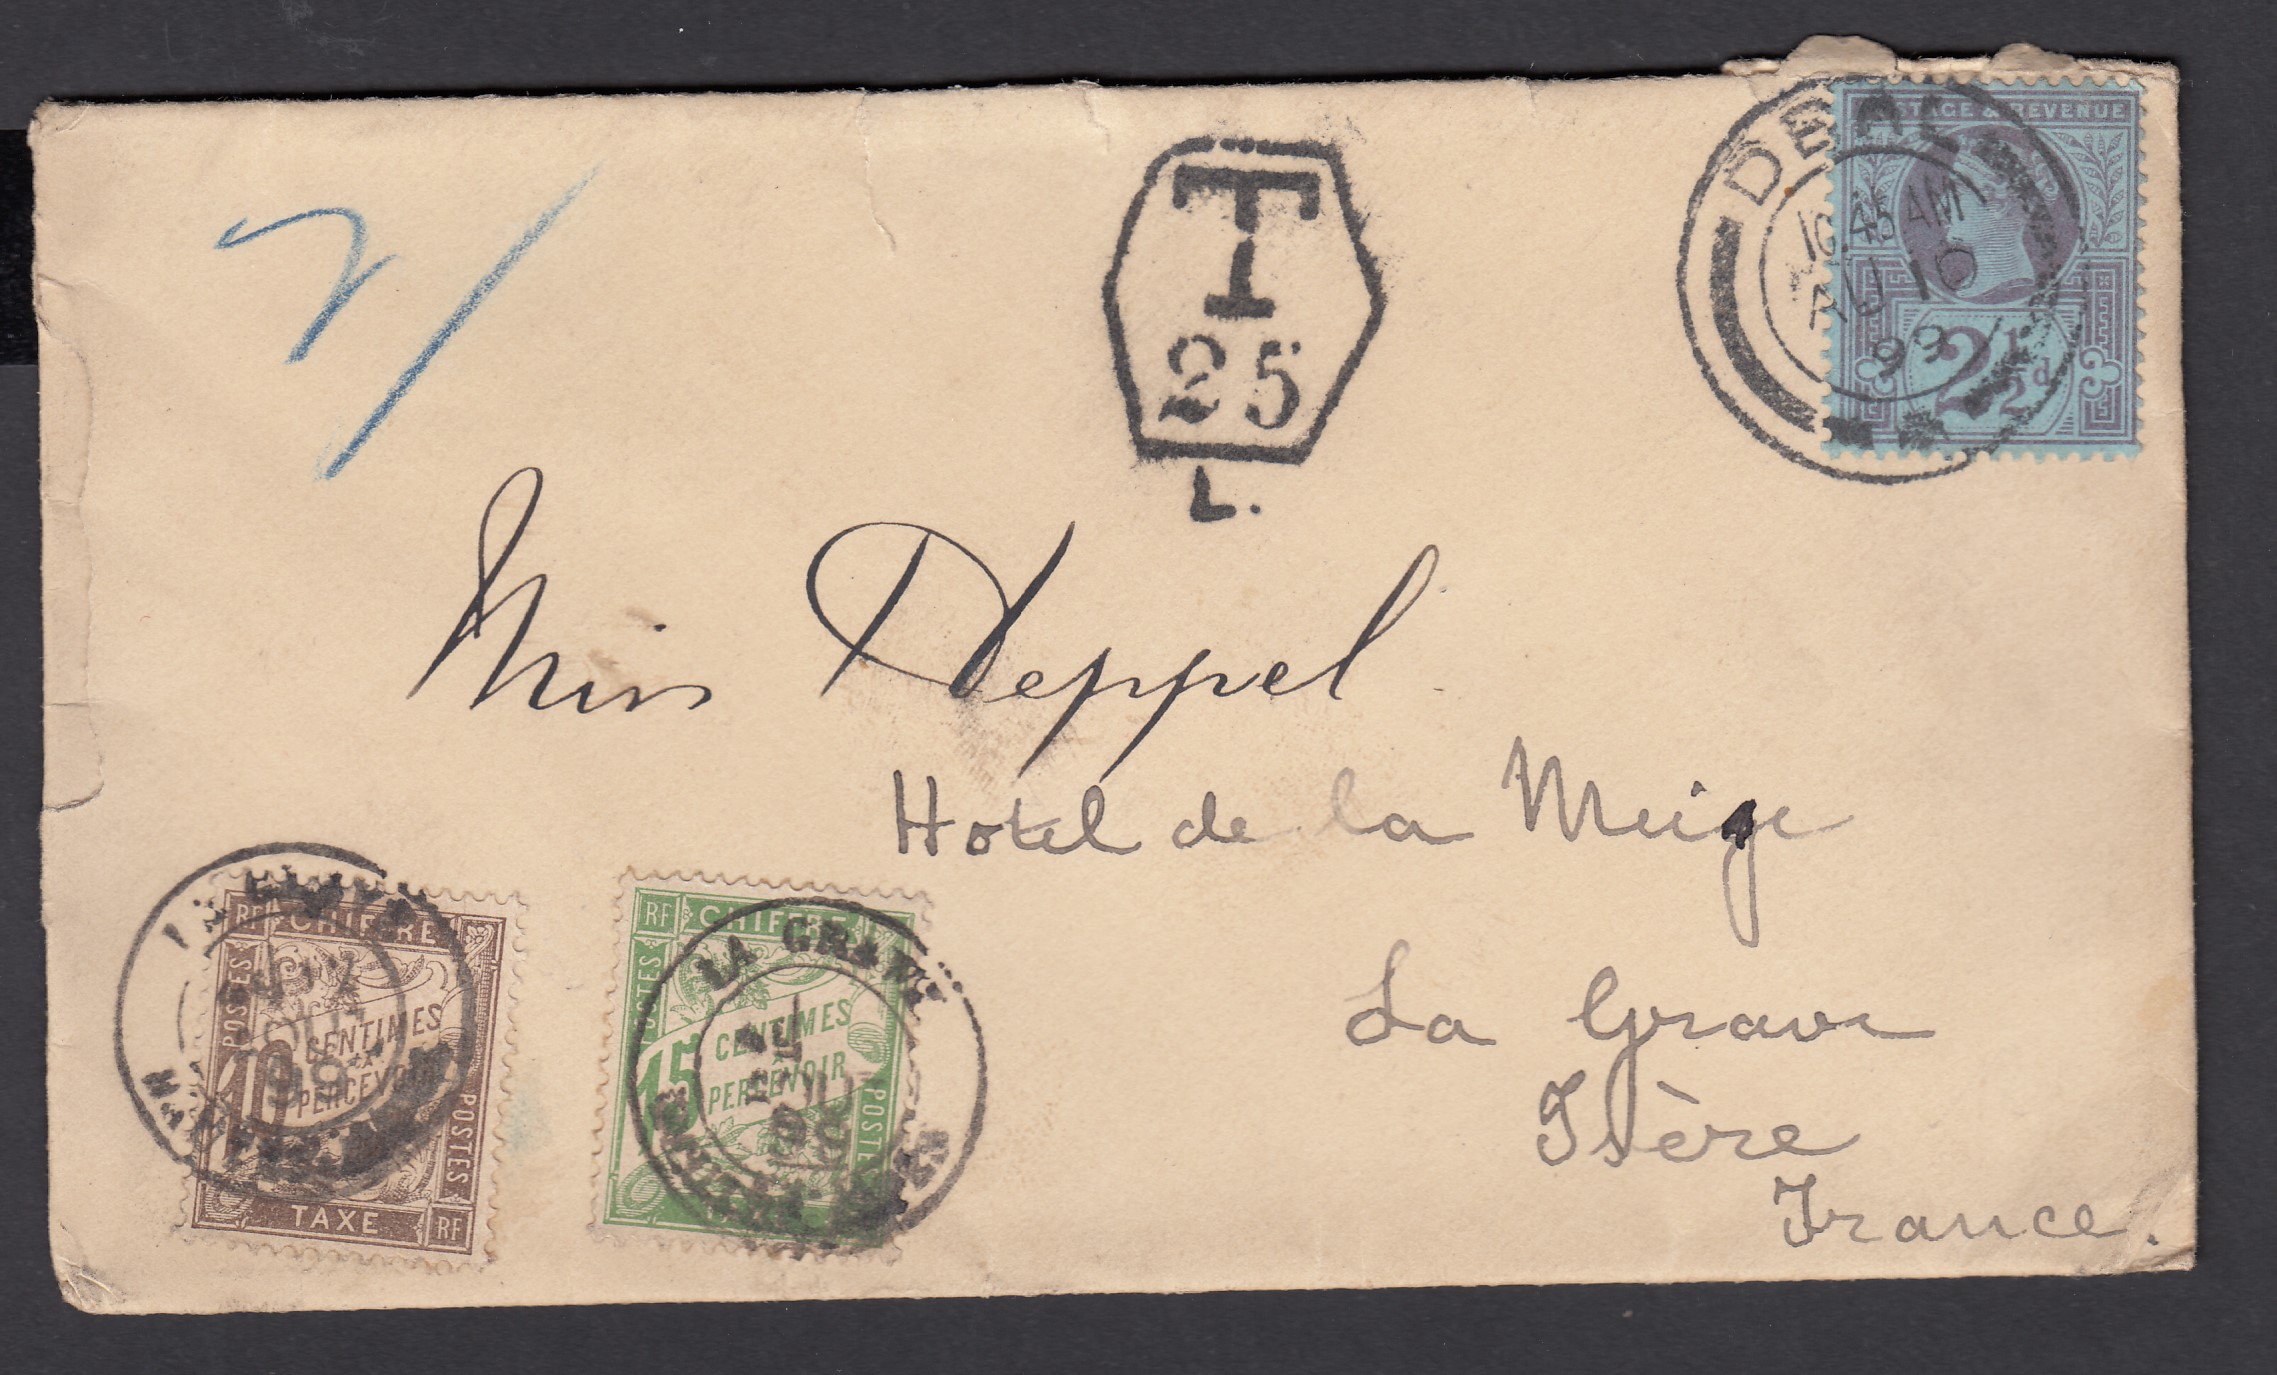 POSTAGE & REVENUE
DEAL
10.45 AM
AU 16
99
2½d
T
25
L.
2/
Miss Heppel
Hotel de la Meige
La Grave
Isère
France.
RF CHIFFRE
POSTES
10 CENTIMES
A
PERCEVOIR
POSTES
TAXE RF
LA GRAVE
99
RF CHIFFRE
POSTES
15 CENTIMES
A
PERCEVOIR
POSTES
LA GRAVE